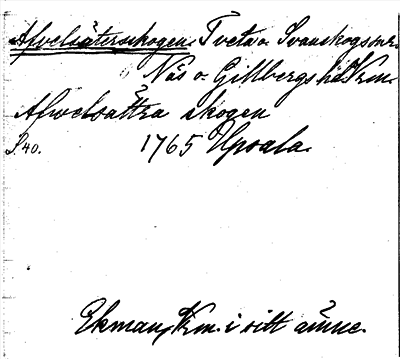 Afvelsäterskogen. Tveta o. Svanskogs snr.
Näs o. Gillbergs hd Vrm.
Afwelsättra skogen
S. 40. 1765 Upsala.
Ekman, Vrm. i sitt ämne.